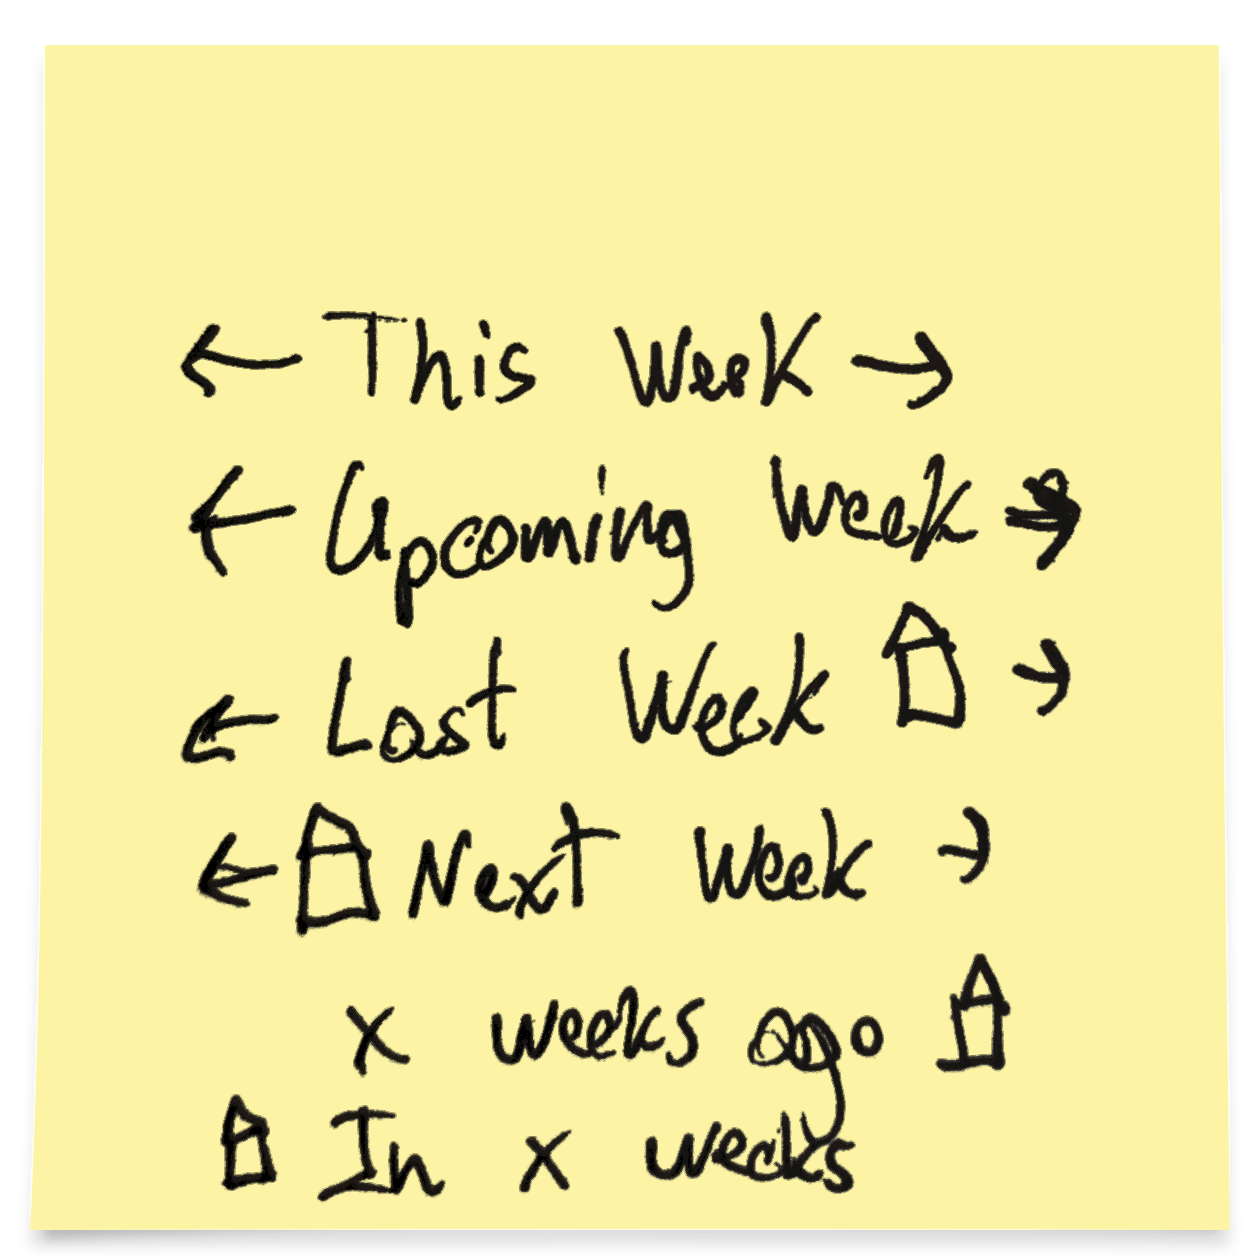 ← This Week →
← Upcoming Week →
← Last Week →
← Next Week →
x weeks ago
In x weeks